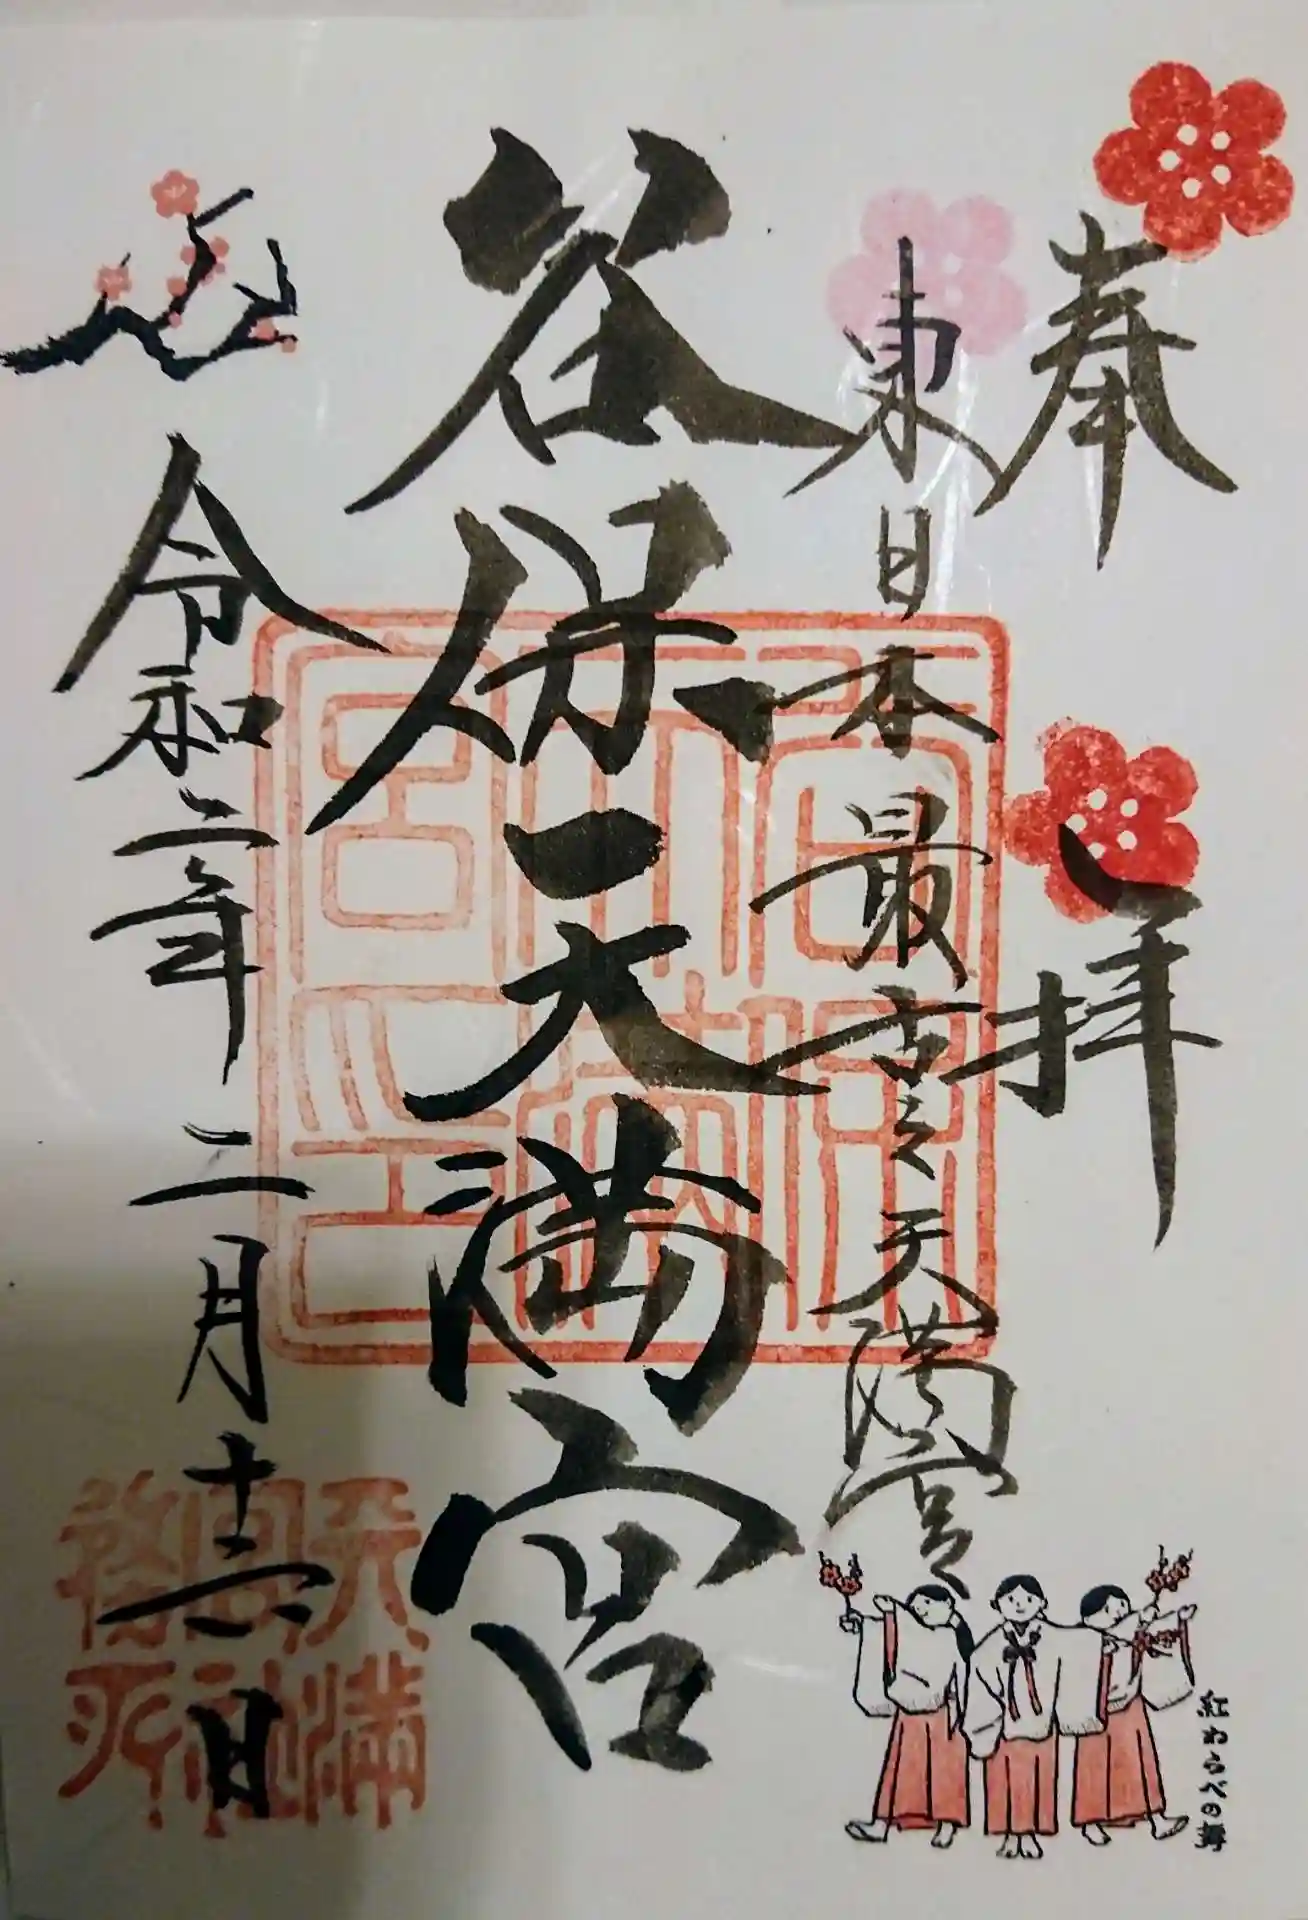 奉拝
東日本最古之天満宮
谷保天満宮
令和二年二月十二日
谷保天満宮印
天満宮社務所
紅わらべの舞